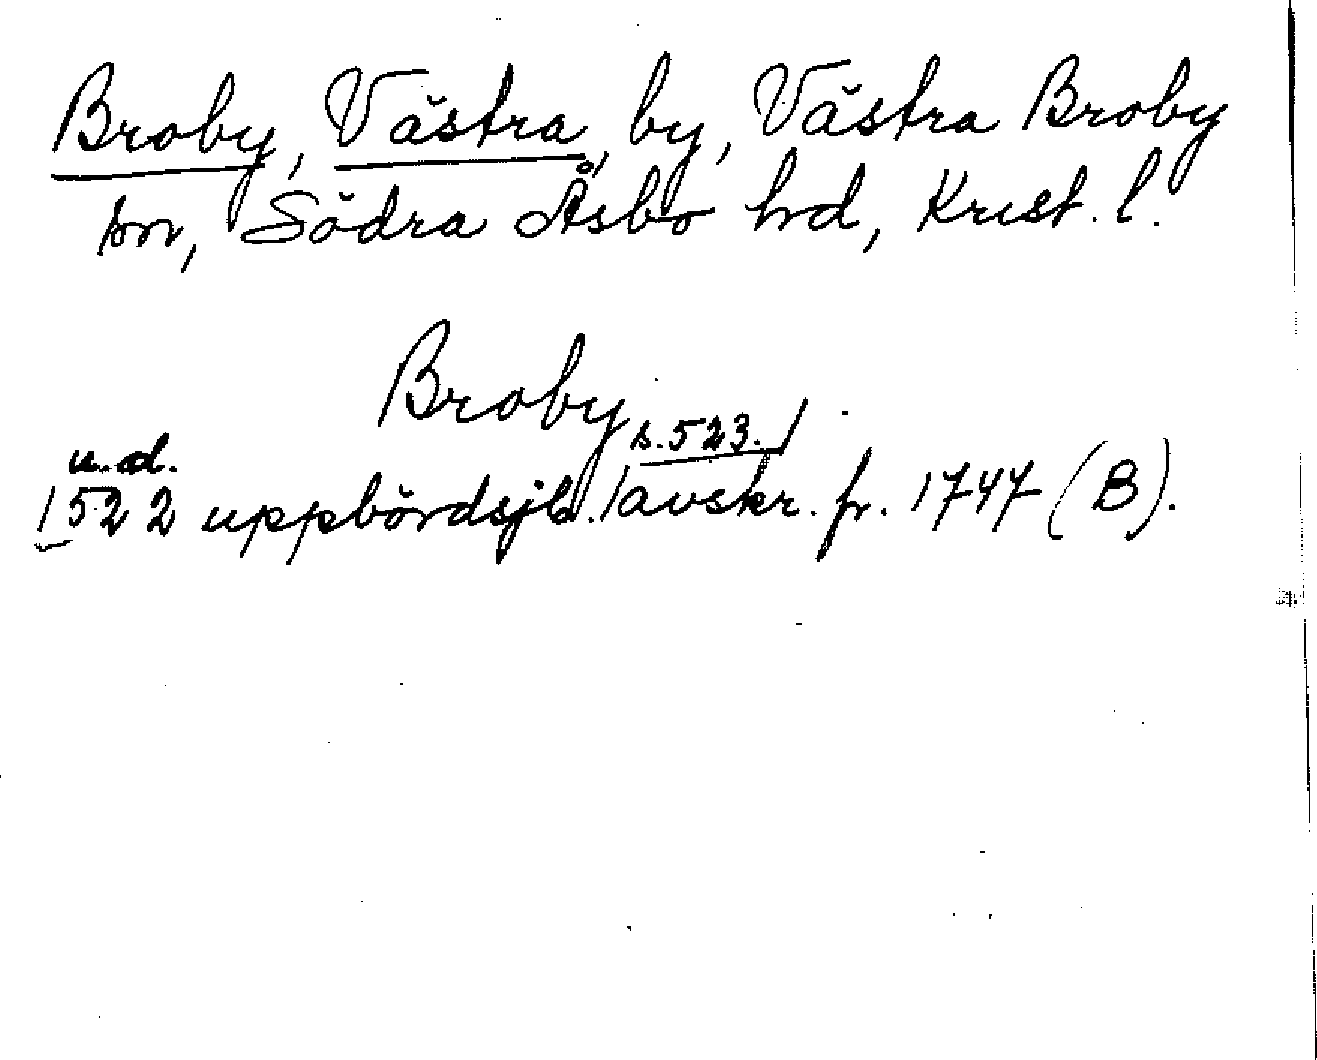 Broby, Västra, by, Västra Broby
sn, Södra Åsbo hd, Krist. l.
Broby
s. 523.
u. d.
1522 uppbördsjb. avskr. fr. 1747 (B).